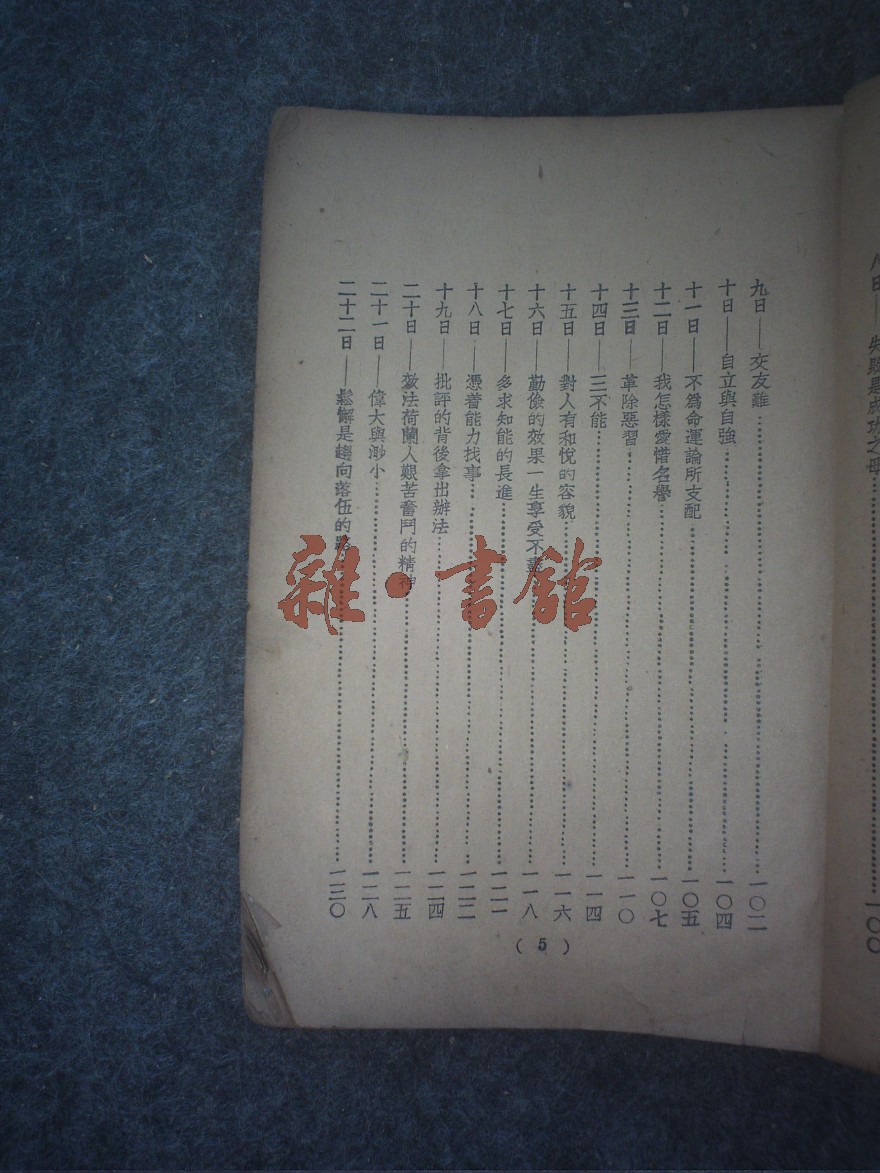 八日——失敗是成功之母……一〇〇
九日——交友難……一〇二
十日——自立與自強……一〇四
十一日——不為命運論所支配……一〇五
十二日——我怎樣愛惜名譽……一〇七
十三日——革除惡習……一一〇
十四日——三不能……一一四
十五日——對人有和悅的容貌……一一六
十六日——勤儉的效果一生享受不盡……一一八
十七日——多求知能的長進……一二一
十八日——憑着能力找事……一二二
十九日——批評的背後拿出辦法……一二四
二十日——效法荷蘭人艱苦奮鬥的精神……一二五
二十一日——偉大與渺小……一二八
二十二日——鬆懈是趨向落伍的路……一三〇
(5)
雜·書館